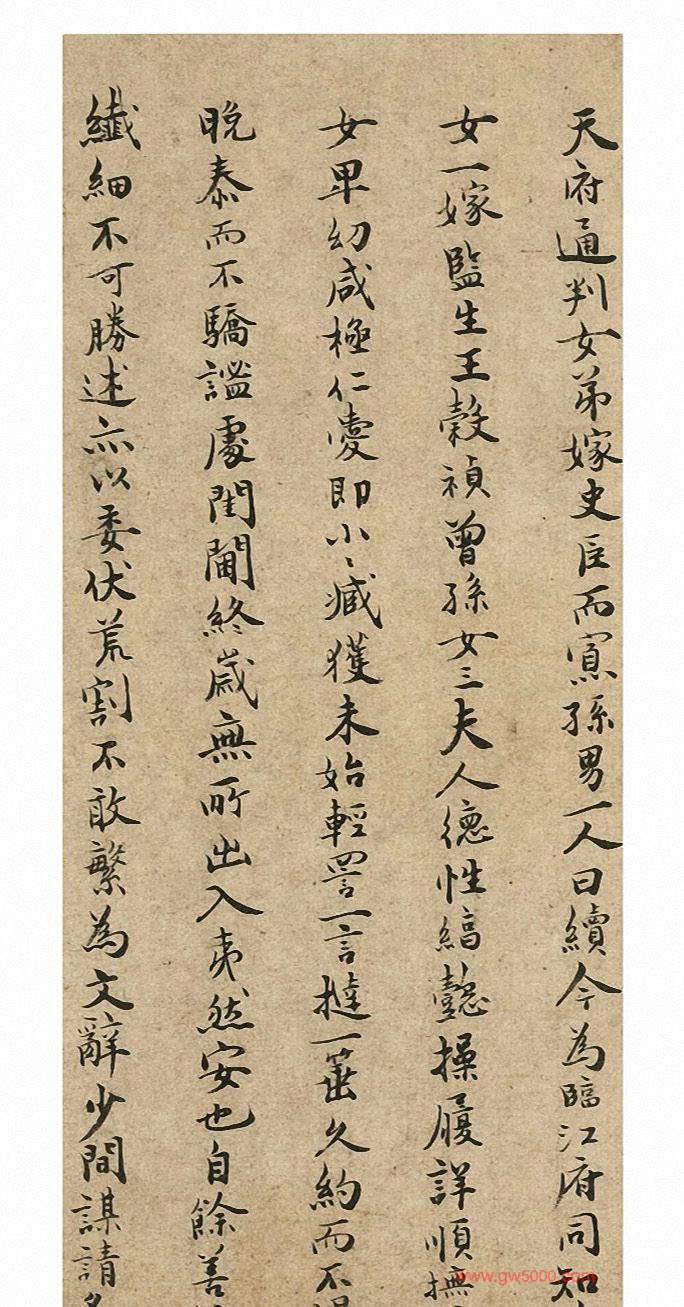 天府通判女弟嫁史臣而寡孫男一人曰續今為臨江府同知
女一嫁監生王穀禎曾孫女三夫人德性縞懿操履詳順撫
女卑幼咸極仁愛即小〻臧獲未始輕詈一言撻一箠久約而不
晚泰而不驕謐處閨閫終歲無所出入夷然安也自餘善
纖細不可勝述亦以委伏荒割不敢繁為文辭少間謀請
www.gw5000.com